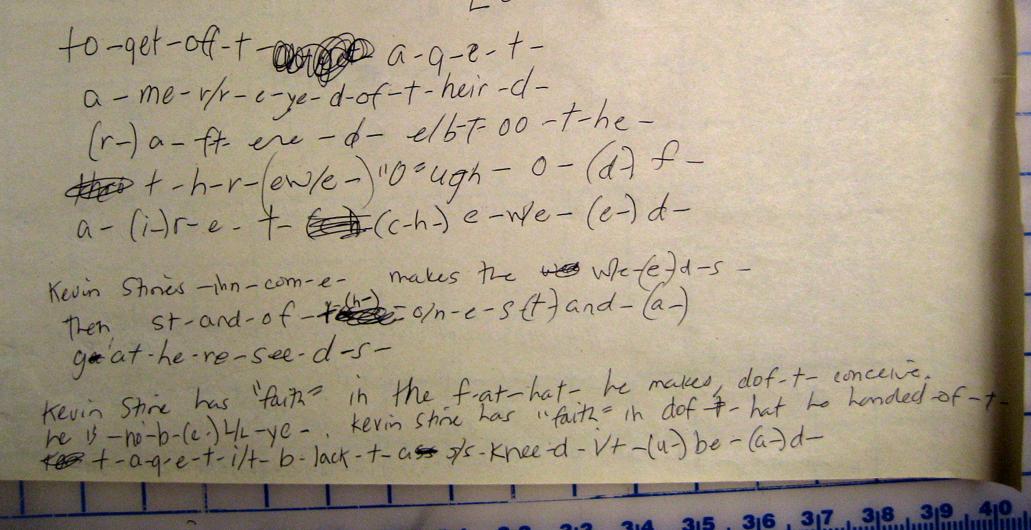 to-get-off-t- a-q-e-t-
a-me-r/r-e-ye-d-of-t-heir-d-
(r-) a-ft ere-d- e/b-t-oo-t-he-
t-h-r-(ew/e-)"O"ugh- o-(d-) f-
a-(i-)r-e-t- (c-h-) e-w/e-(e-) d-
Kevin Stines -ihn-com-e- makes the w/e-(e-)d-s-
then st-and-of- (h-) o/n-e-s(t-) and-(a-)
g-at-he-re-see-d-s-
Kevin Stine has "faith" in the f-at-hat- he makes, dof-t- conceive.
he is -no-b-(e-) -ye-. Kevin Stine has "faith" in dof-t-hat he handed-of-t-
t-a-q-e-t-i/t-b-lack-t-a s/s-knee-d-i/t-(u-) be-(a-)d-
3|4 3|5 3|6 3|7 3|8 3|9 4|0